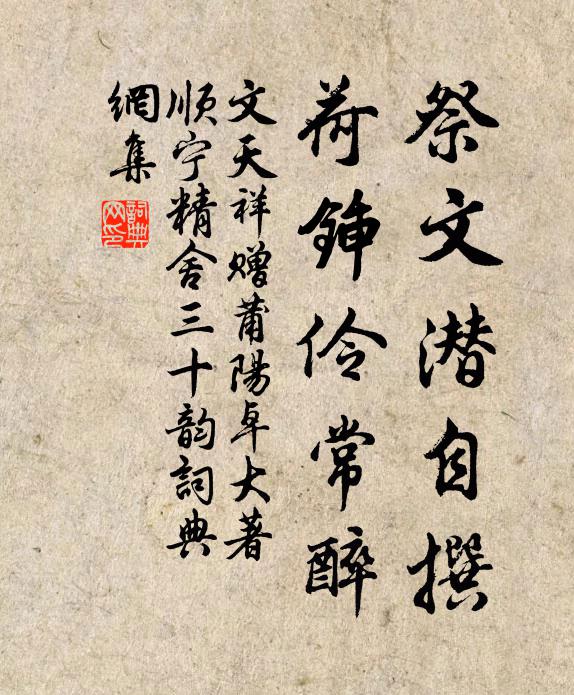 祭文潜自撰
荷锸伶常醉
文天祥赠莆陽卓大著
顺宁精舍三十韵詞典
網集
詞典網印